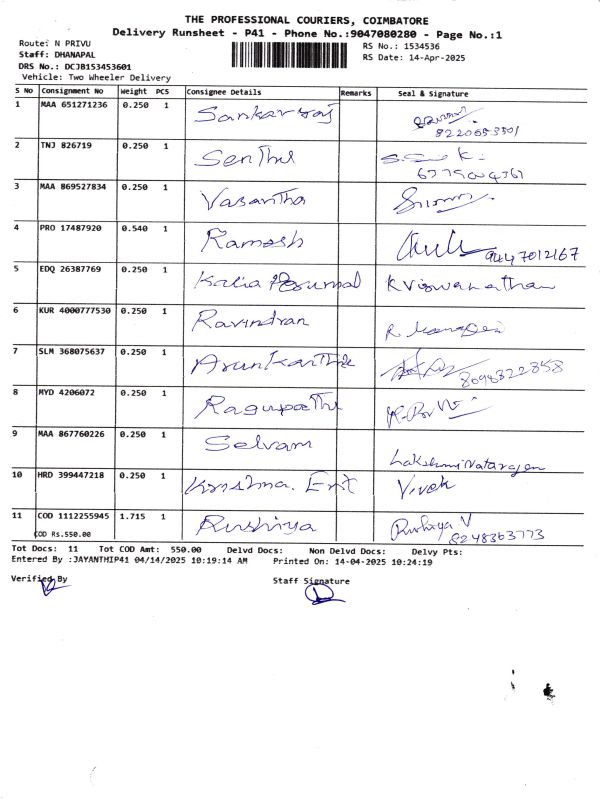 THE PROFESSIONAL COURIERS, COIMBATORE
Delivery Runsheet - P41 - Phone No.:9047080280 - Page No.:1
Route: N PRIVU
Staff: DHANAPAL
DRS No.: DCJB153453601
Vehicle: Two Wheeler Delivery
RS No.: 1534536
RS Date: 14-Apr-2025
S No Consignment No Weight PCS Consignee Details Remarks Seal & Signature
1 MAA 651271236 0.250 1 Sankarraj
8220653501
2 TNJ 826719 0.250 1 Senthil
3 MAA 869527834 0.250 1 Vasantha
4 PRO 17487920 0.540 1 Ramesh 9447012167
5 EDQ 26387769 0.250 1 Kalia Perumal K Viswanathan
6 KUR 4000777530 0.250 1 Ravindran
7 SLM 368075637 0.250 1 Arunkarthik
8098322858
8 MYD 4206072 0.250 1 Ragupathi
9 MAA 867760226 0.250 1 Selvam Lakshmi Natarajan
10 HRD 399447218 0.250 1 Krishna. Ent Vivek
11 COD 1112255945 1.715 1 Rushiya Rushiya V
COD Rs.550.00 8248363773
Tot Docs: 11 Tot COD Amt: 550.00 Delvd Docs: Non Delvd Docs: Delvy Pts:
Entered By :JAYANTHIP41 04/14/2025 10:19:14 AM Printed On: 14-04-2025 10:24:19
Verified By Staff Signature